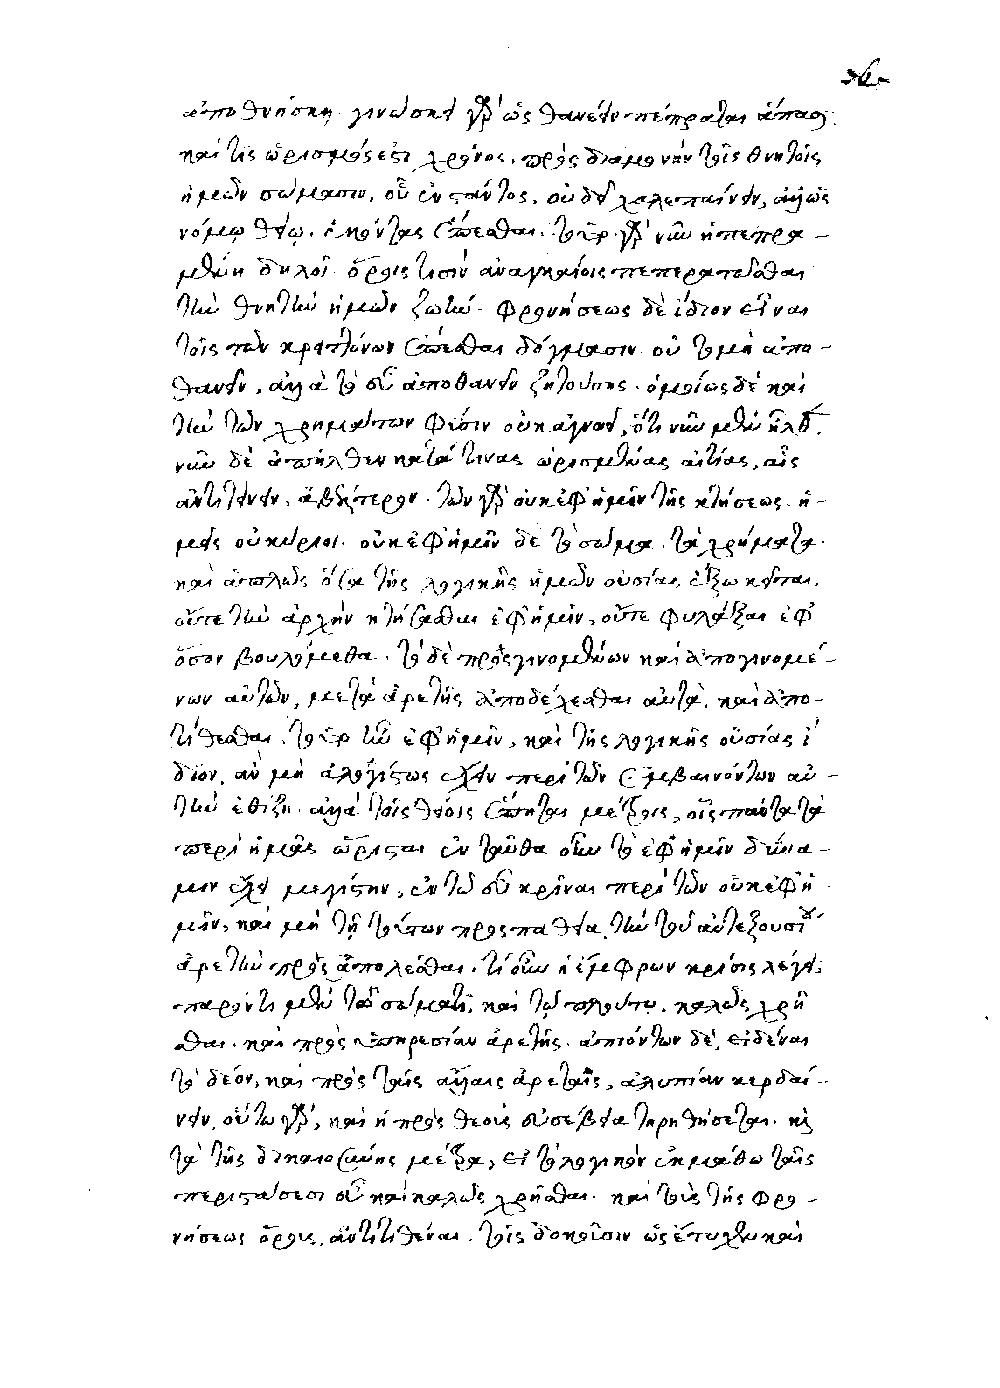 ἀποθνήσκῃ. γινώσκει γὰρ ὡς θανεῖν πέπραται ἅπασι.
καί τις ὡρισμός ἐστι χρόνος. πρὸς διαμονὴν τοῖς θνητοῖς
ἡμῶν σώμασιν, οὗ ἐνστάντος, οὐ δεῖ χαλεπαίνειν, ἀλλ' ὡς
νόμῳ θείῳ. ἑκόντας ἕπεσθαι. τοῦτο γὰρ νῦν ἡ πεπρω-
μένη δηλοῖ ὅροις τισὶν ἀναγκαίοις πεπερατῶσθαι
τὴν θνητὴν ἡμῶν ζωήν. φρονήσεως δὲ ἴδιον εἶναι
τοῖς τῶν κρειττόνων ἕπεσθαι δόγμασιν οὐ τὸ μὴ ἀπο-
θανεῖν, ἀλλὰ τὸ εὖ ἀποθανεῖν ζητούσης. ὁμοίως δὲ καὶ
τὴν τῶν χρημάτων φύσιν οὐκ ἀγνοεῖ, ὅτι νῦν μὲν ἦλθε,
νῦν δὲ ἀπῆλθεν κατά τινας ὡρισμένας αἰτίας, αἷς
ἀντιτείνειν, ἀβέλτερον. τῶν γὰρ οὐκ ἐφ' ἡμῖν τῆς κτήσεως. ἡ-
μεῖς οὐ κύριοι. οὐκ ἐφ' ἡμῖν δὲ τὸ σῶμα. τὰ χρήματα.
καὶ ἁπλῶς ὅσα τῆς λογικῆς ἡμῶν οὐσίας ἔξω κεῖται.
οὔτε τὴν ἀρχὴν κτήσασθαι ἐφ' ἡμῖν, οὔτε φυλάξαι ἐφ'
ὅσον βουλόμεθα. τὸ δὲ προσγινομένων καὶ ἀπογινομέ-
νων αὐτῶν, μετὰ ἀρετῆς ἀποδέχεσθαι αὐτὰ. καὶ ἀπο-
τίθεσθαι. τοῦτο τῶν ἐφ' ἡμῖν, καὶ τῆς λογικῆς οὐσίας ἴ
διον. ἂν μὴ ἀλογίστως ἔχειν περὶ τῶν συμβαινόντων αὑ-
τὴν ἐθίζῃ. ἀλλὰ τοῖς θείοις ἕπηται μέτροις, οἷς πάντα τὰ
περὶ ἡμᾶς ὥρισται ἐνταῦθα οὖν τὸ ἐφ' ἡμῖν δύνα-
μιν ἔχει μεγίστην, ἐν τῷ εὖ κρῖναι περὶ τῶν οὐκ ἐφ' ἡ
μῖν, καὶ μὴ τῇ τούτων προσπαθείᾳ. τὴν τοῦ αὐτεξουσίου
ἀρετὴν προσαπολέσθαι. τί οὖν ἡ ἔμφρων κρίσις λέγει;
παρόντι μὲν τῷ σώματι, καὶ τῷ πλούτῳ. καλῶς χρῆ
σθαι. καὶ πρὸς ὑπηρεσίαν ἀρετῆς. ἀπιόντων δὲ, εἰδέναι
τὸ δέον, καὶ πρὸς ταῖς ἄλλαις ἀρεταῖς, ἀλυπίαν κερδαί-
νειν. οὕτω γὰρ, καὶ ἡ πρὸς θεοὺς εὐσέβεια τηρηθήσεται. καὶ
τὰ τῆς δικαιοσύνης μέτρα, εἰ τὸ λογικὸν ἐκμάθοι ταῖς
περιστάσεσι εὖ καὶ καλῶς χρῆσθαι. καὶ τοὺς τῆς φρο-
νήσεως ὅρους, ἀντιτιθέναι. τοῖς δοκοῦσιν ὡς ἔτυχεν καὶ